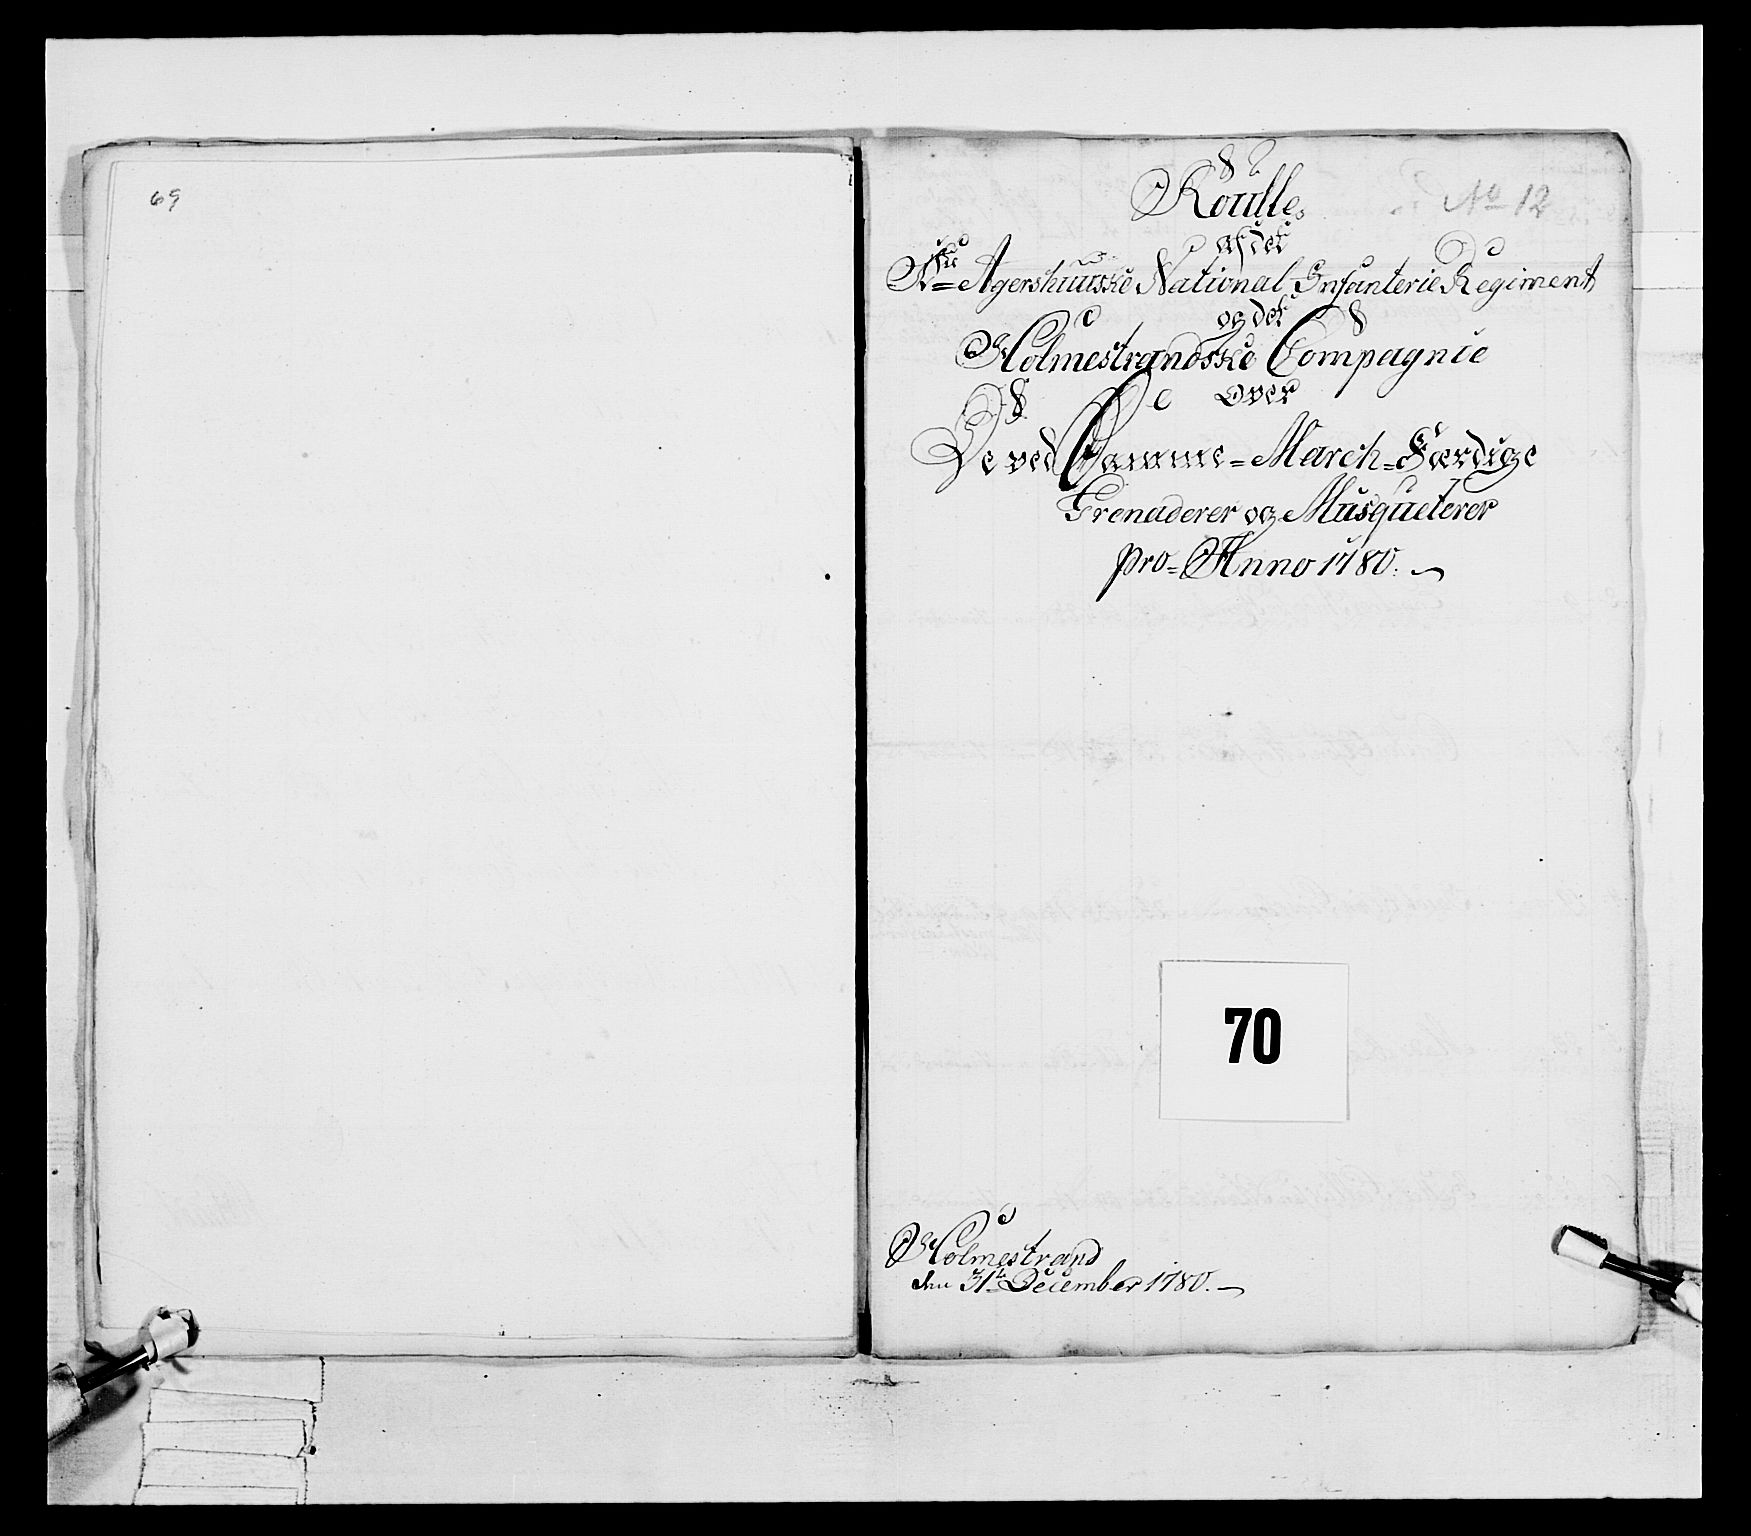 69
No 12
Roulle
af det
1ste Agershuuske National Infanterie Regiment
og det
Holmestrandske Compagnie
Over
De ved Stamme=March=Færdige
Grenaderer og Musqueterer
pro=Anno 1780.
70
Holmestrand
den 31te December 1780.